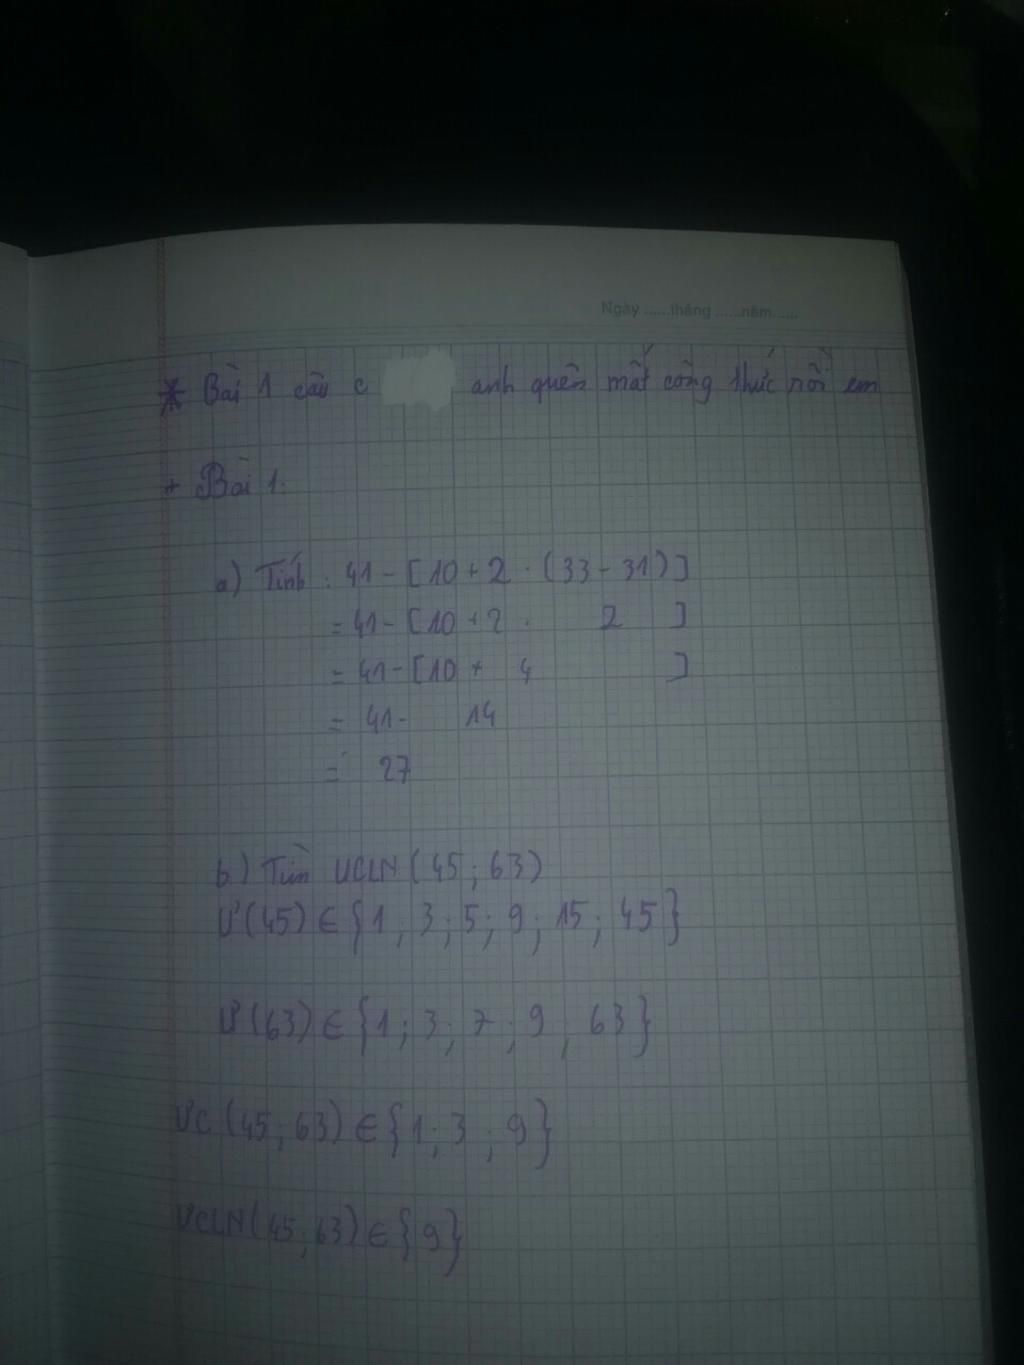 Ngày ......tháng ......năm......
* Bài 1 câu c anh quên mất công thức rồi em
+ Bài 1:
a) Tính: 41 - [10 + 2 . (33 - 31)]
= 41 - [10 + 2 . 2 ]
= 41 - [10 + 4 ]
= 41 - 14
= 27
b) Tìm ƯCLN (45 ; 63)
Ư(45) ∈ {1 ; 3 ; 5 ; 9 ; 15 ; 45}
Ư(63) ∈ {1 ; 3 ; 7 ; 9 ; 63}
ƯC (45 ; 63) ∈ {1 ; 3 ; 9}
ƯCLN (45 ; 63) ∈ {9}